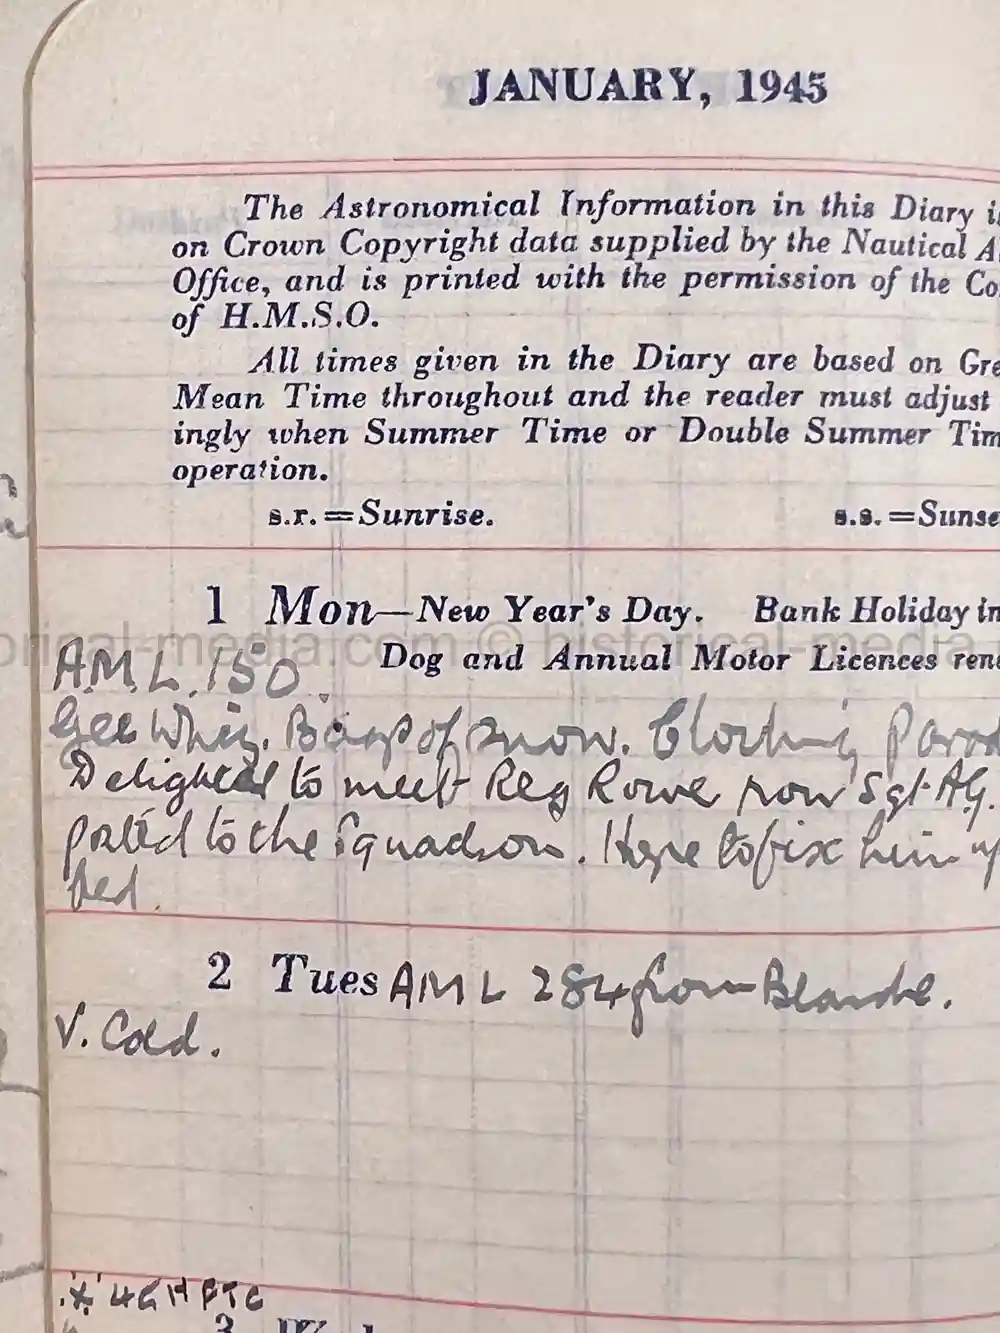 JANUARY, 1945
The Astronomical Information in this Diary i
on Crown Copyright data supplied by the Nautical A
Office, and is printed with the permission of the Co
of H.M.S.O.
All times given in the Diary are based on Gre
Mean Time throughout and the reader must adjust
ingly when Summer Time or Double Summer Tim
operation.
s.r.=Sunrise. s.s.=Sunse
1 Mon—New Year's Day. Bank Holiday in
orical-media.com © historical-media
A.M.L. 150. Dog and Annual Motor Licences ren
Gee Whiz. of snow. Clothing Parad
Delighted to meet Reg Rowe now Sgt. A.G.
posted to the Squadron. Hope to fix him up
bed.
2 Tues AML 284 from Blanche.
V. Cold.
3